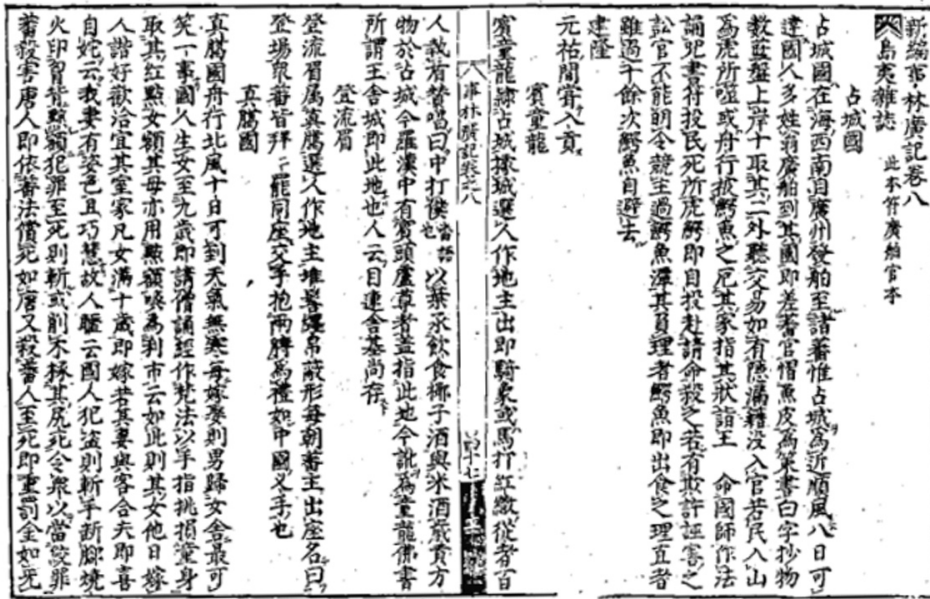 新編事林廣記卷八
島夷雜誌 此本係廣舶官本
占城國
占城國在海西南自廣州發舶至諸蕃惟占城為近順風八日可
達國人多姓翁廣舶到其國即差蕃官摺黑皮為策書白字抄物
數監盤上岸十取其二外聽交易如有隱漏籍没入官若民入山
為虎所噬或舟行被鱷魚之厄其家指其狀詣王 命國師作法
誦呪書符投民死所虎鱷即自投赴請命殺之若有欺詐誣害之
訟官不能明令競主過鱷魚潭其負理者鱷魚即出食之理直者
雖過十餘次鱷魚自避去
建隆
元祐間甞入貢
賓童龍
賓童龍隸占城攃城選人作地主出即騎象或馬打紅繖從者百
人執盾賛唱曰 以葉承飲食椰子酒與米酒歲貢方
物於占城今羅漢中有賓頭盧尊者盖指此地今訛為童龍佛書
所謂王舍城即此地也人云目連舍基尚存
登流眉
登流眉属真臘選人作地主堆髻纏帛蔽形每朝蕃主出座名曰
登場衆蕃皆拜拜罷同座交手抱兩膊為禮如中國叉手也
真臘國
真臘國舟行北風十日可到天氣無寒每嫁娶則男歸女舍最可
笑一事國人生女至九歲即請僧誦經作梵法以手指挑損童身
取其紅點女額其母亦用點額喚為利市云如此則其女他日嫁
人諧好歡洽宜其室家凡女滿十歲即嫁若其妻與客合夫即喜
自妮云我妻有姿色且巧慧故人 云國人犯盜則斬手斷脚燒
火印胷背黥額犯罪至死則斬或削木 其尻死令衆以當絞罪
蕃殺害唐人即依蕃法償死如唐又殺蕃人至死即重罰金如无
事林廣記卷之八